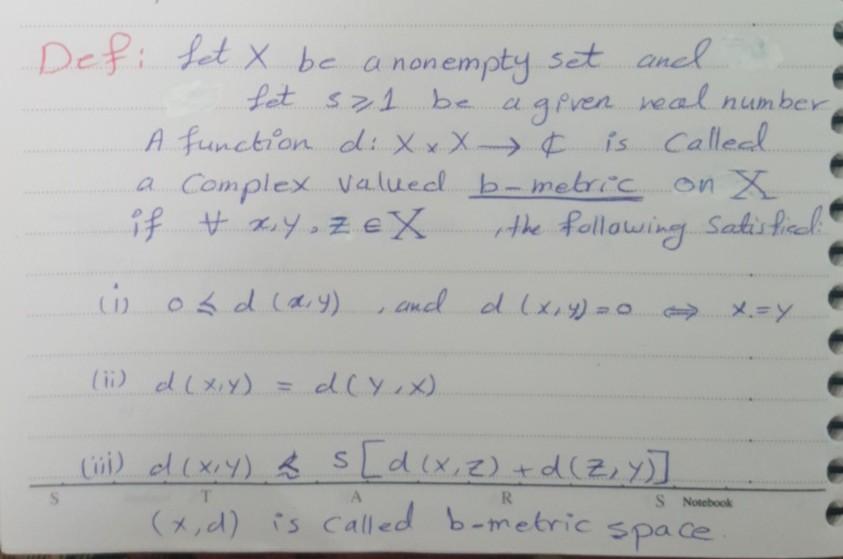 Def: Let X be a nonempty set and
Let s ≥ 1 be a given real number
A function d: X × X → ℂ is called
a complex valued b-metric on X
if ∀ x, y, z ∈ X , the following satisfied:
(i) 0 ≲ d (x,y) , and d (x,y) = 0 ⇔ x = y
(ii) d(x,y) = d(y,x)
(iii) d(x,y) ≲ s[d(x,z) + d(z,y)]
S T A R S Notebook
(x,d) is called b-metric space.